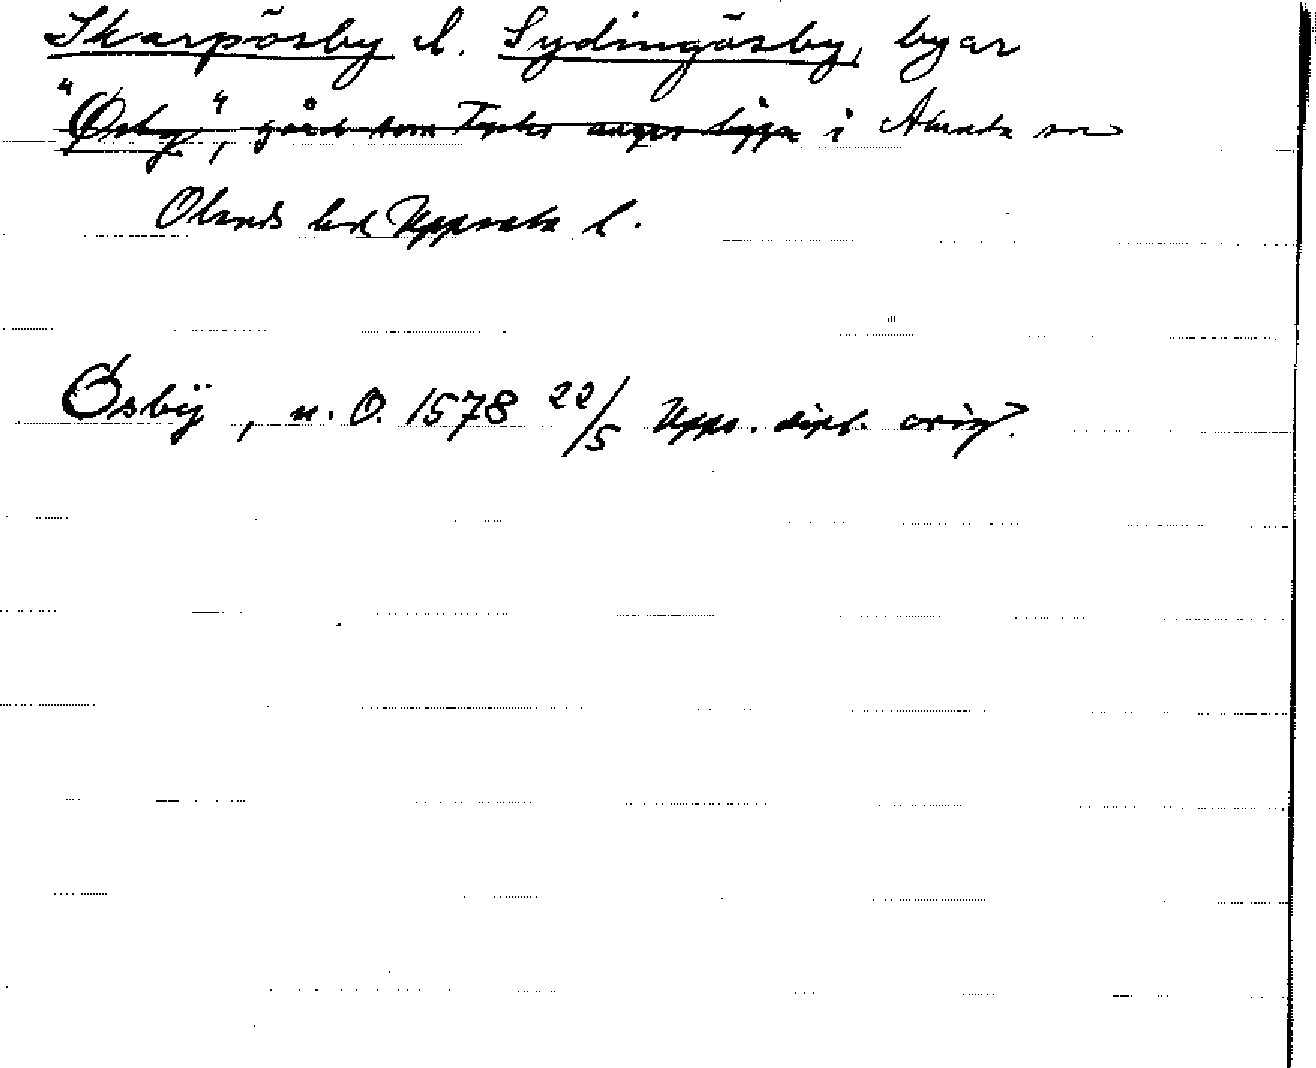 Skarpösby o. Sydingösby, byar
"Ösby", gård som Tycks anges ligga i Almunge sn
Olands hd Uppsala l.
Ösbÿ, n. O. 1578 22/5 Upps. dipl. orig.